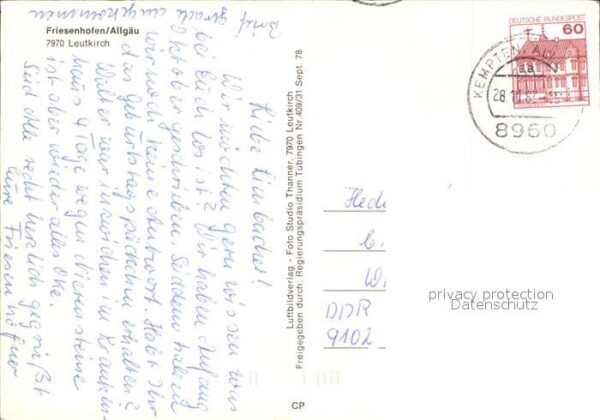 Friesenhofen/Allgäu
7970 Leutkirch
Brief grade angekommen
Liebe Limbacher!
Wir möchten gern wissen was
bei Euch los ist? Wir haben Anfang
Oktober geschrieben. Seitdem haben
wir noch keine Antwort. Habt Ihr
das Geburtstagspäckchen erhalten?
Walter war inzwischen im Kranken-
haus 4 Tage wegen Nierensteine
ist aber wieder alles oke.
Seid alle recht herzlich gegrüßt
Eure Friesenhofner
Luftbildverlag - Foto Studio Thanner, 7970 Leutkirch
Freigegeben durch: Regierungspräsidium Tübingen Nr 409/31 Sept. 78
CP
DEUTSCHE BUNDESPOST
60
KEMPTEN
8960
DDR
9102
privacy protection
Datenschutz